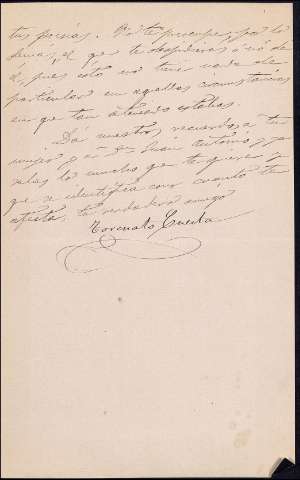 tus poesías. No te preocupes, por lo
demás, el que te despidieras ó nó de
él, pues ésto nó tiene nada de
particular en aquellas circunstancias
en que tan atareado estabas.
Dá nuestros recuerdos á tu
mujer y á Dn Juan Antonio, y
lo mucho que te quiere y
que se identifica con cuanto te
afecta, tu verdadero amigo
Torcuato Cuesta